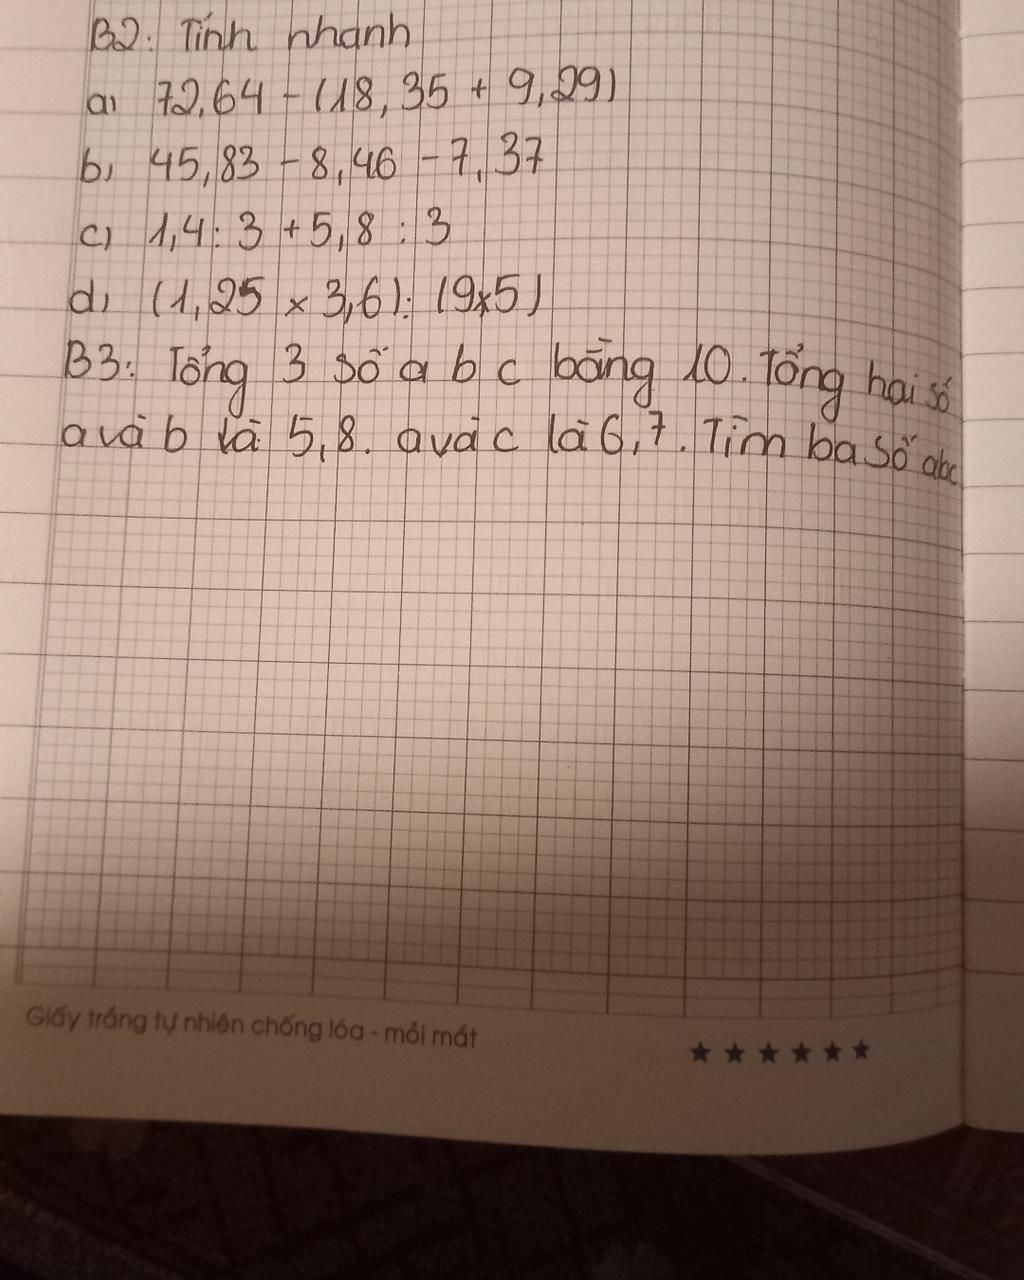 B2: Tính nhanh
a) 72,64 - (18,35 + 9,29)
b) 45,83 - 8,46 - 7,37
c) 1,4 : 3 + 5,8 : 3
d) (1,25 x 3,6) : (9x5)
B3: Tổng 3 số a b c bằng 10. Tổng hai số
a và b là 5,8. a và c là 6,7. Tìm ba số abc
Giấy trắng tự nhiên chống lóa - mỏi mắt
★ ★ ★ ★ ★ ★